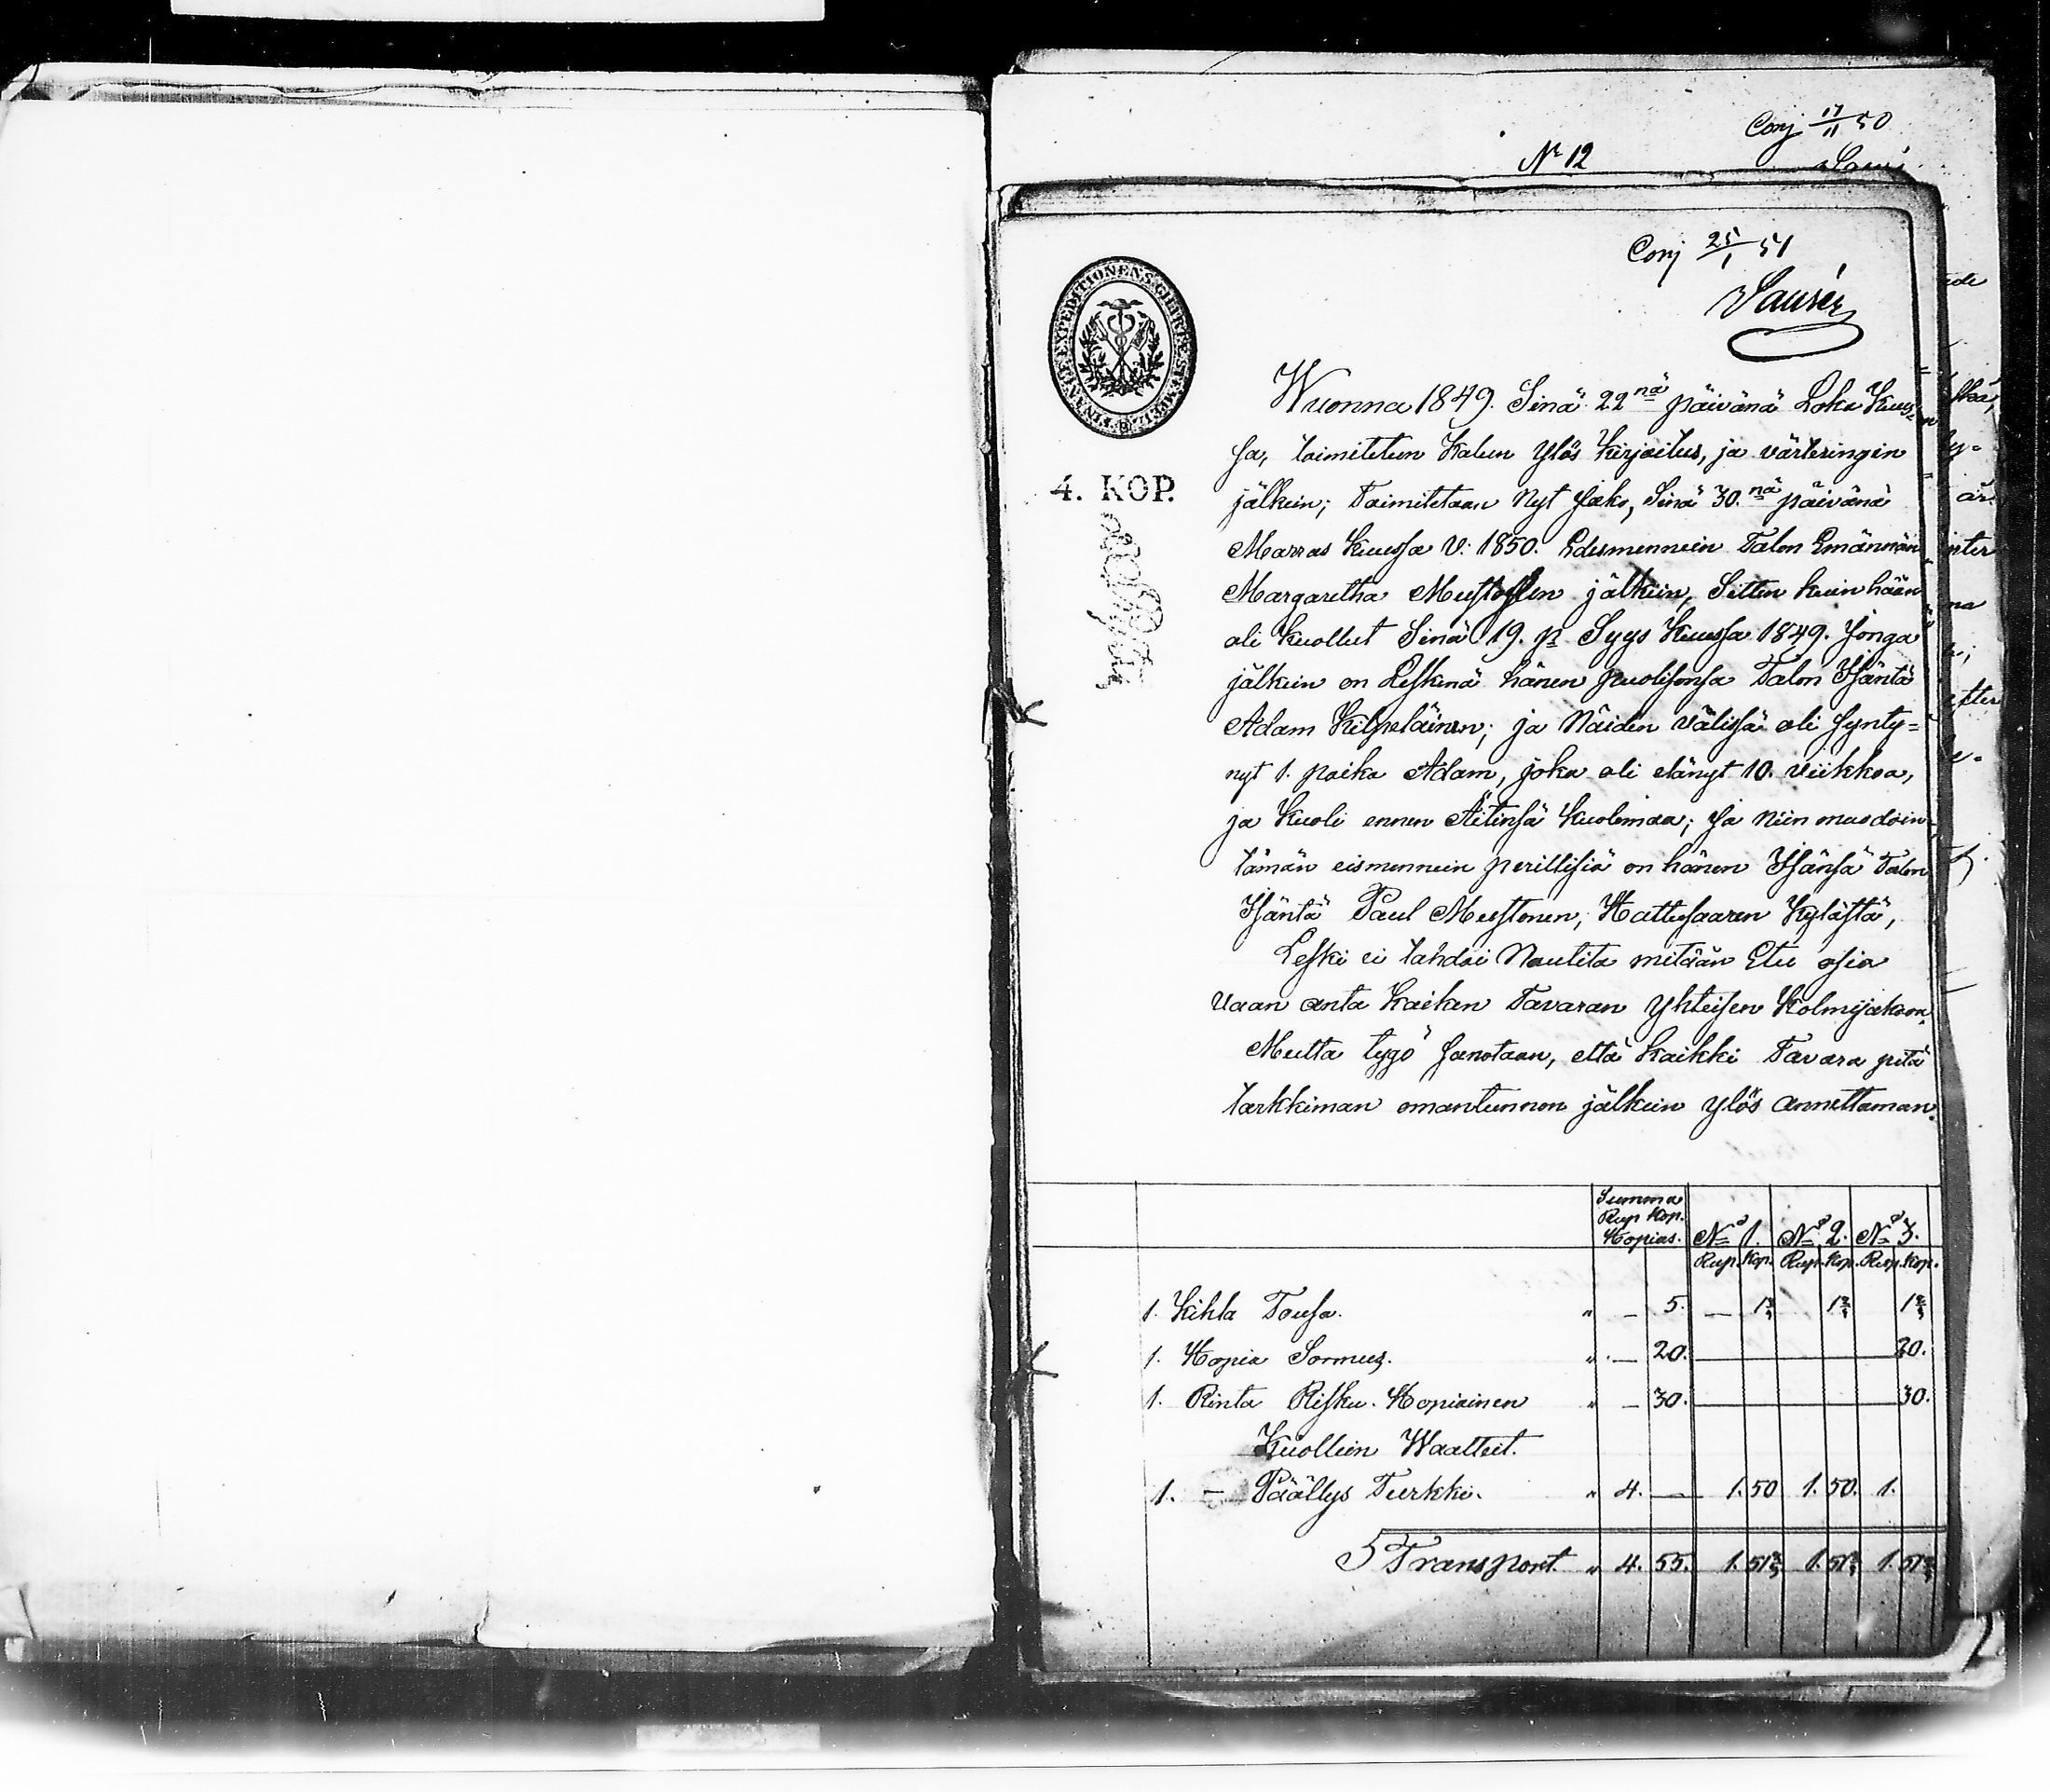 Conj 17/11 50
No 12
Conj 25/1 51
FINANS EXPEDITIONENS CHARTÆ STÄMPEL
4. KOP.
Wuonna 1849. Sinä 22nä päivänä Loka Kuus=
sa, toimitetun Kalun Ylös Kirjoitus, ja värteringin
jälkein; Toimitetaan Nyt Jako, Sinä 30.nä päivänä
Marras Kuussa V: 1850. Edesmennein Talon Emännän
Margaretha Mustosen jälkein, Sitten kuin hään
oli Kuollut Sinä 19. p Syys Kuussa 1849. Jonga
jälkein on Leskenä hänen puolisonsa Talon Isäntä
Adam Kilpeläinen; ja Näiden välissä oli synty=
nyt 1. poika Adam, joka oli elänyt 10. viikkoa,
ja Kuoli ennen Äitinsä kuolemaa; Ja niin muodoin
tämän eismennein perillisiä on hänen Isänsä Talon
Isäntä Paul Mustonen, Hattusaaren Kylästä,
Leski ei tahdoi Nautita mitään Etu osia
vaan anta Kaiken Tavaran Yhteisen Kolmijakoon.
Mutta tygö sanotaan, että kaikki Tavara pitä
tarkkiman omantunnon jälkein ylös annettaman.
Summa
Rup Kop.
Hopias. No 1. No 2. No 3.
Rup. Kop. Rup. Kop. Rup. Kop.
1. Kihla Tousa. " — 5. — 1⅔ 1⅔ 1⅔
1. Hopia Sormus. " — 20. 20.
1. Rinta Risku. Hopiainen " — 30. 30.
Kuollein Waatteet.
1. — Päällys Turkki. " 4. — 1. 50 1. 50. 1.
Transport. " 4. 55. 1. 51⅔ 1. 51⅔ 1. 51⅔